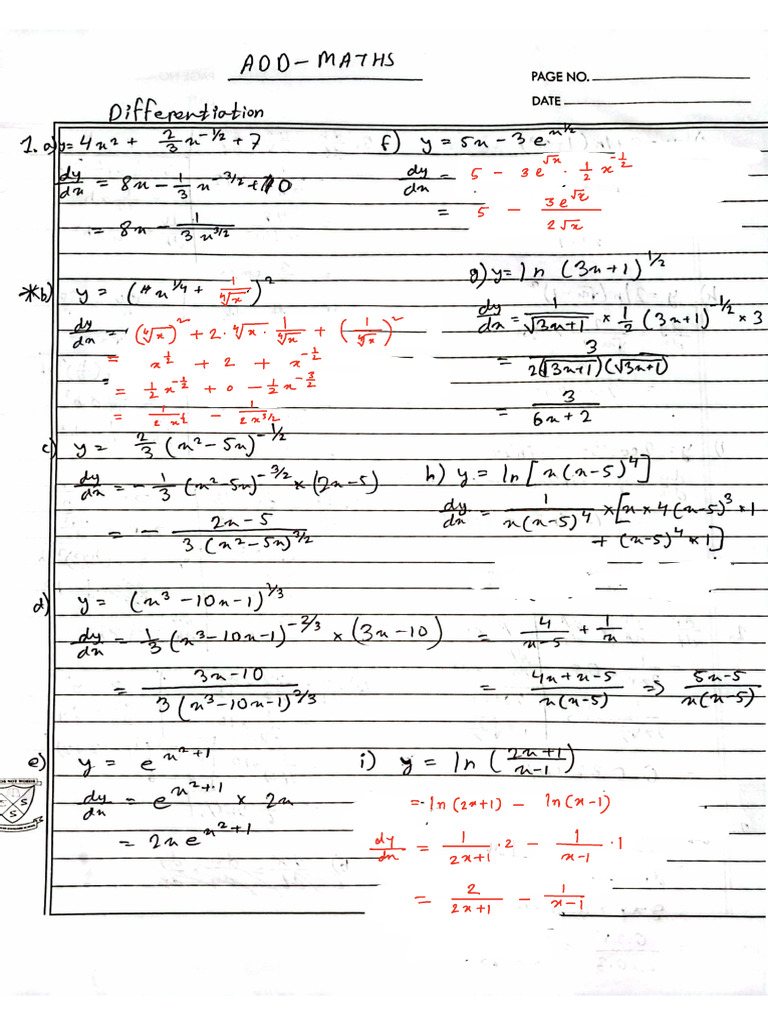 ADD-MATHS
PAGE NO.
DATE
Differentiation
1. a) y = 4x² + 2/3 x^(-1/2) + 7
dy/dx = 8x - 1/3 x^(-3/2) + 0
= 8x - 1/(3x^(3/2))
*b) y = (x^(1/4) + 1/⁴√x)²
dy/dx = (⁴√x)² + 2·⁴√x·1/⁴√x + (1/⁴√x)²
= x^(1/2) + 2 + x^(-1/2)
=
= 1/2 x^(-1/2) + 0 - 1/2 x^(-3/2)
= 1/(2x^(1/2)) - 1/(2x^(3/2))
c) y = 2/3 (x² - 5x)^(-1/2)
dy/dx = -1/3 (x² - 5x)^(-3/2) × (2x - 5)
= - (2x - 5)/(3(x² - 5x)^(3/2))
d) y = (x³ - 10x - 1)^(1/3)
dy/dx = 1/3 (x³ - 10x - 1)^(-2/3) × (3x - 10)
= (3x - 10)/(3(x³ - 10x - 1)^(2/3))
e) y = e^(x²+1)
dy/dx = e^(x²+1) × 2x
= 2x e^(x²+1)
f) y = 5x - 3e^(x^(1/2))
dy/dx = 5 - 3e^(√x) · 1/2 x^(-1/2)
= 5 - 3e^(√x)/(2√x)
g) y = ln (3x+1)^(1/2)
dy/dx = 1/√(3x+1) × 1/2 (3x+1)^(-1/2) × 3
= 3/(2(√(3x+1))(√(3x+1)))
= 3/(6x+2)
h) y = ln[x(x-5)⁴]
dy/dx = 1/(x(x-5)⁴) × [x × 4(x-5)³ × 1
+ (x-5)⁴ × 1]
= 4/(x-5) + 1/x
= (4x + x - 5)/(x(x-5)) => (5x-5)/(x(x-5))
i) y = ln((2x+1)/(x-1))
= ln(2x+1) - ln(x-1)
dy/dx = 1/(2x+1) · 2 - 1/(x-1) · 1
= 2/(2x+1) - 1/(x-1)